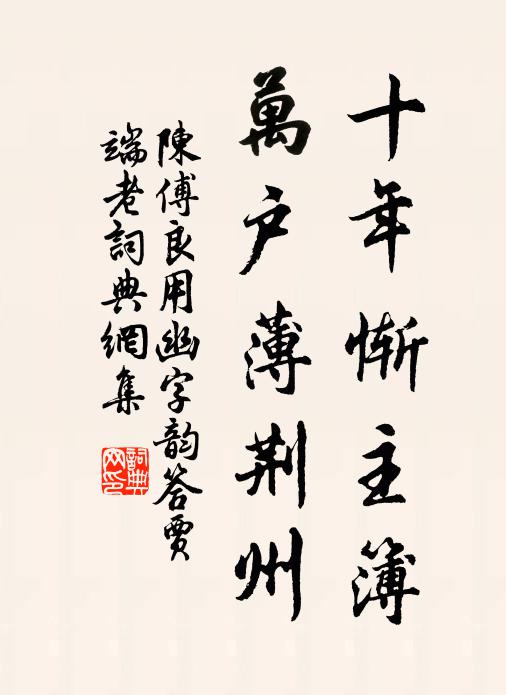 十年慚主簿
萬户薄荆州
陳傅良用幽字韵答賈
端老詞典網集
詞典網印